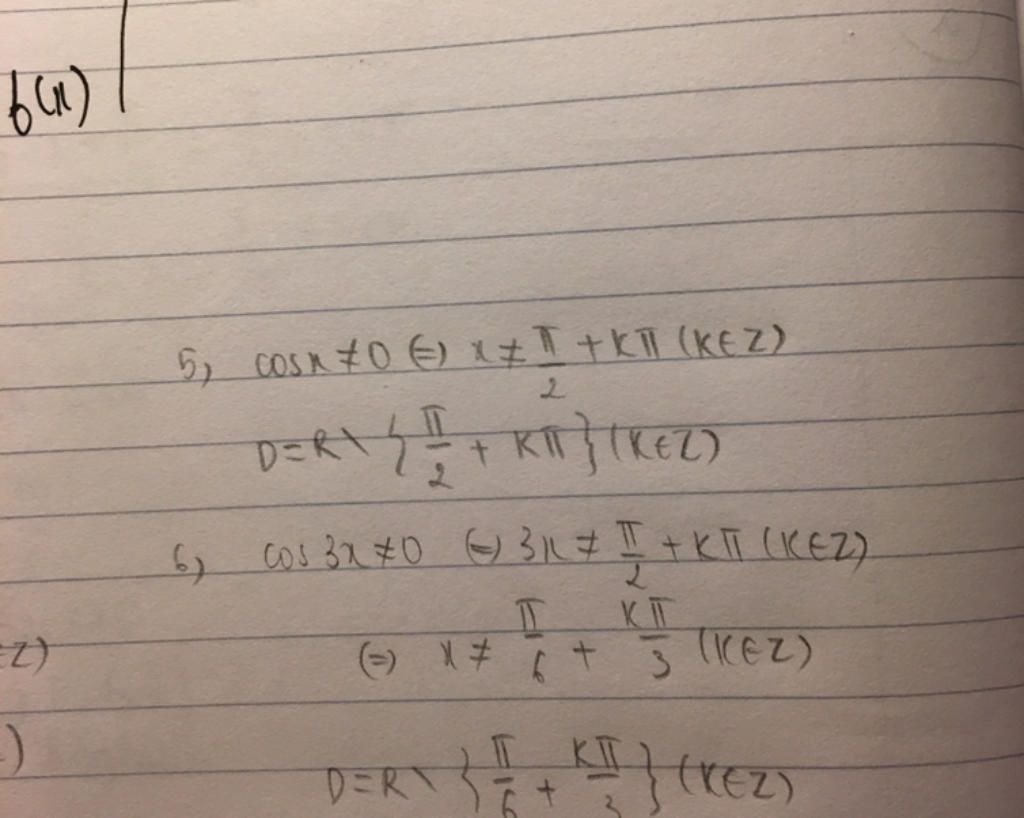 f(x)
5, cosx ≠ 0 (=) x ≠ π/2 + Kπ (K∈Z)
D = R \ { π/2 + Kπ } (K∈Z)
6, cos 3x ≠ 0 (=) 3x ≠ π/2 + Kπ (K∈Z)
∈Z) (=) x ≠ π/6 + Kπ/3 (K∈Z)
) D = R \ { π/6 + Kπ/3 } (K∈Z)